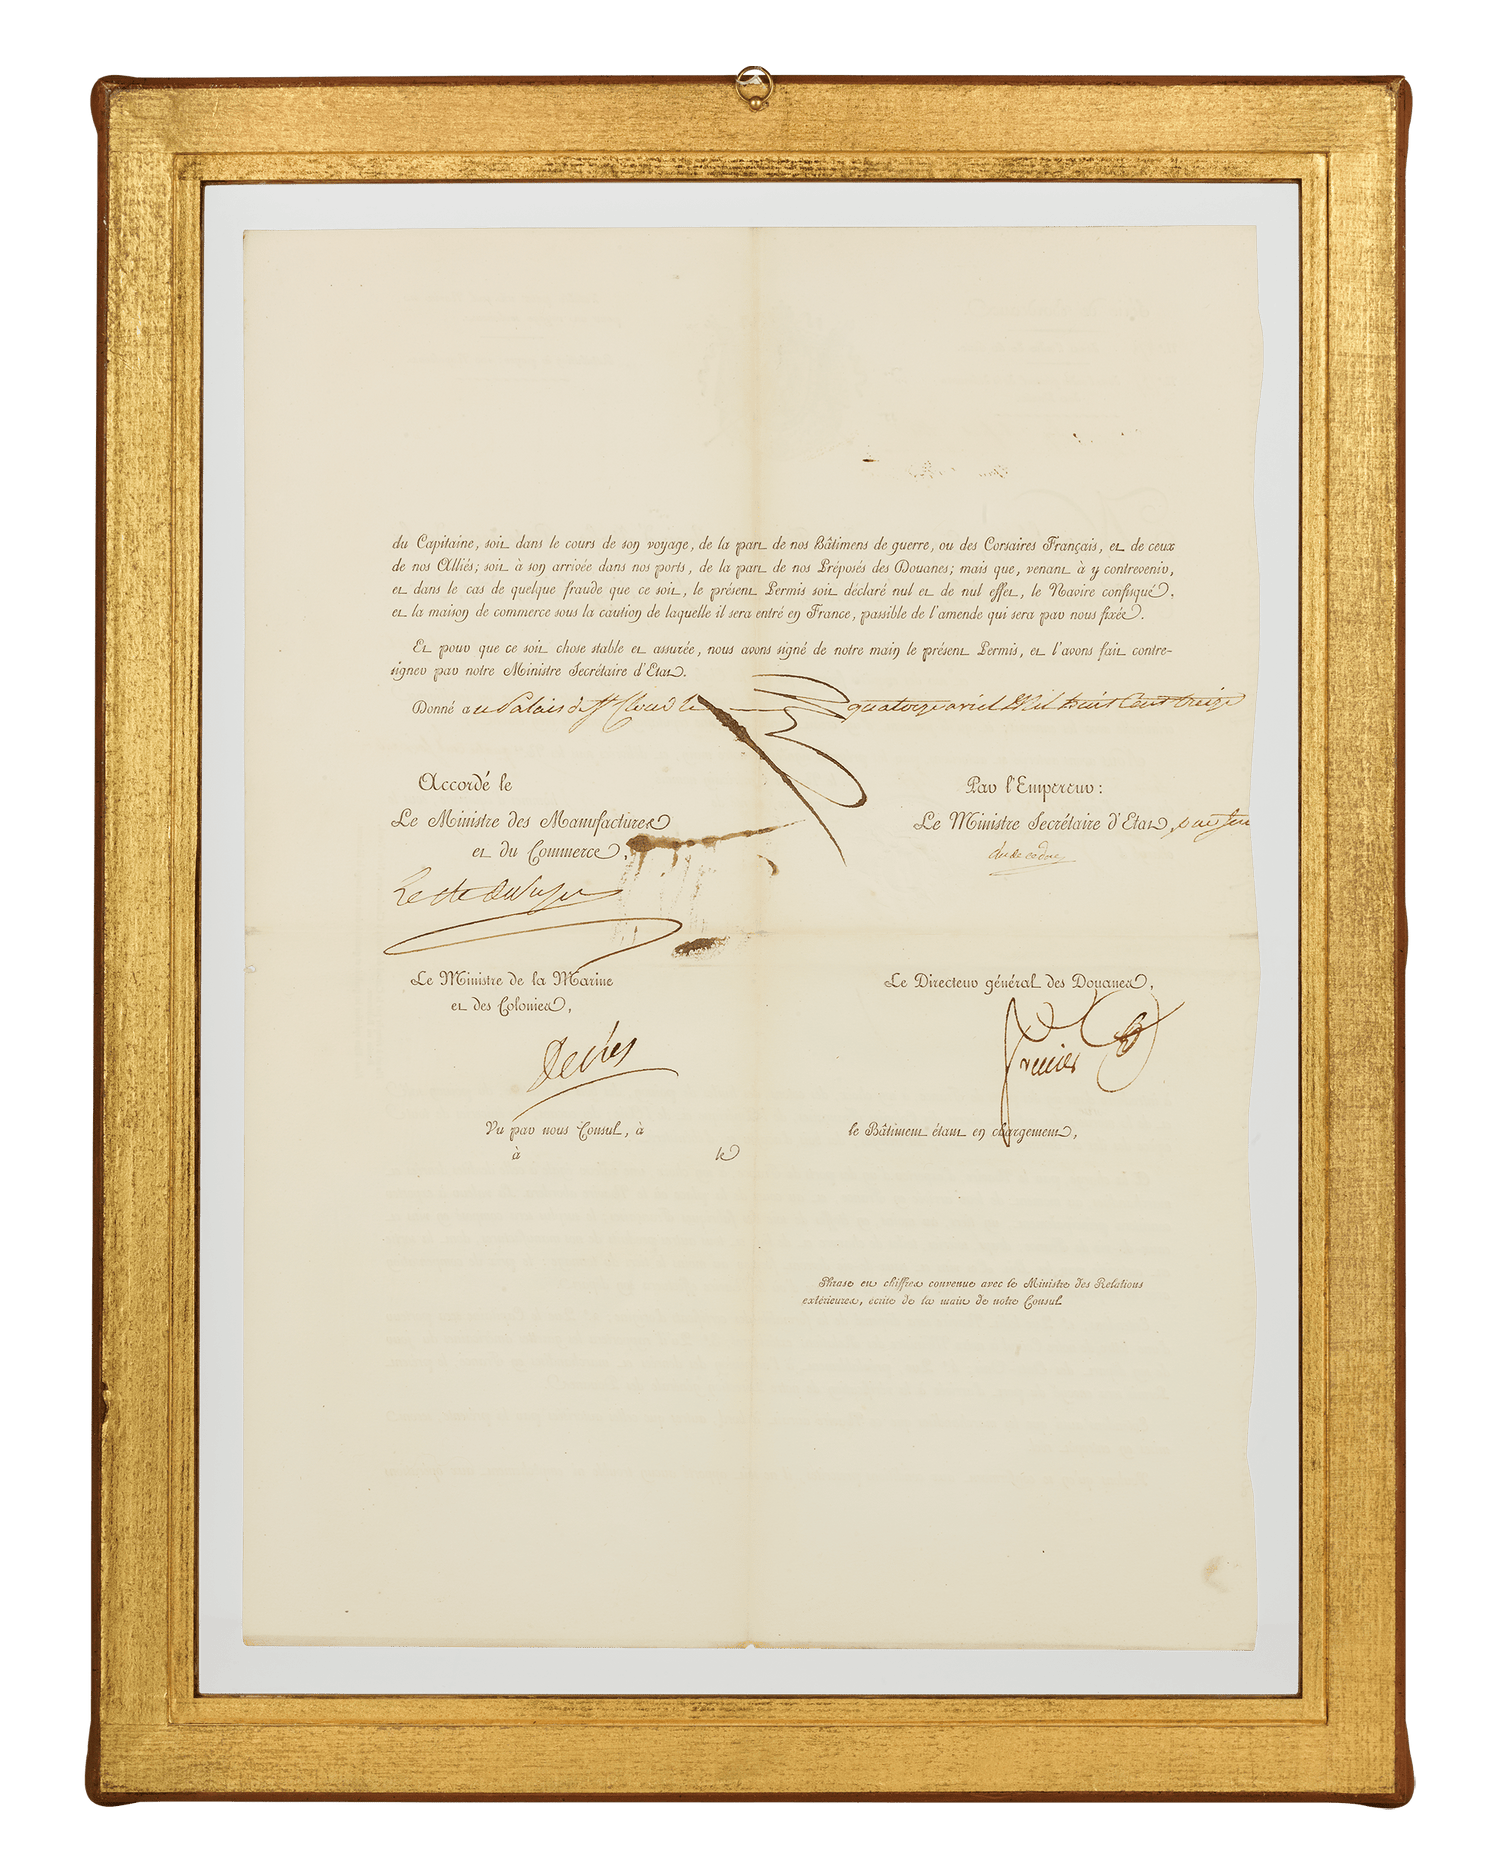 du Capitaine, soit dans le cours de son voyage, de la part de nos Bâtimens de guerre, ou des Corsaires Français, et de ceux
de nos Alliés; soit à son arrivée dans nos ports, de la part de nos Préposés des Douanes; mais que, venant à y contrevenir,
et dans le cas de quelque fraude que ce soit, le présent Permis soit déclaré nul et de nul effet, le Navire confisqué,
et la maison de commerce sous la caution de laquelle il sera entré en France, passible de l'amende qui sera par nous fixée.
Et pour que ce soit chose stable et assurée, nous avons signé de notre main le présent Permis, et l'avons fait contre-
signer par notre Ministre Secrétaire d'Etat.
Donné au Palais de St Cloud le quatorze avril Mil huit Cent treize
Accordé le
Par l'Empereur:
Le Ministre des Manufactures
et du Commerce,
Le Ministre Secrétaire d'Etat,
duc de cadore
Le cte de Sussy
Le Ministre de la Marine
et des Colonies,
Le Directeur général des Douanes,
Decrès
Vu par nous Consul, à
à le
le Bâtiment étant en chargement,
Phrase en chiffres convenue avec le Ministre des Relations
extérieures, écrite de la main de notre Consul